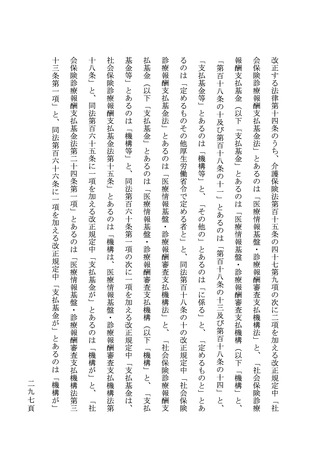 改正する法律第十四条のうち、介護保険法第百十五条の四十七第九項の次に二項を加える改正規定中「社
会保険診療報酬支払基金法」とあるのは「医療情報基盤・診療報酬審査支払機構法」と、「社会保険診療
報酬支払基金（以下「支払基金」とあるのは「医療情報基盤・診療報酬審査支払機構（以下「機構」と、
「第百十八条の十及び第百十八条の十一」とあるのは「第百十八条の十三及び第百十八条の十四」と、
「支払基金等」とあるのは「機構等」と、「その他の」とあるのは「に係る」と、「定めるものと」とあ
るのは「定めるものその他厚生労働省令で定める者と」と、同法第百十八条の十の改正規定中「社会保険
診療報酬支払基金法」とあるのは「医療情報基盤・診療報酬審査支払機構法」と、「社会保険診療報酬支
払基金（以下「支払基金」とあるのは「医療情報基盤・診療報酬審査支払機構（以下「機構」と、「支払
基金等」とあるのは「機構等」と、同法第百六十条第一項の次に一項を加える改正規定中「支払基金は、
社会保険診療報酬支払基金法第十五条」とあるのは「機構は、医療情報基盤・診療報酬審査支払機構法第
十八条」と、同法第百六十五条に一項を加える改正規定中「支払基金が」とあるのは「機構が」と、「社
会保険診療報酬支払基金法第二十四条第一項」とあるのは「医療情報基盤・診療報酬審査支払機構法第三
十三条第一項」と、同法第百六十六条に一項を加える改正規定中「支払基金が」とあるのは「機構が」
二九七頁